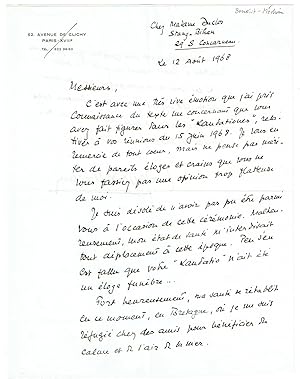 52, AVENUE DE CLICHY
PARIS-XVIIIe
Chez Madame Duclos
29 S Concarneau
Le 12 Août 1968
Messieurs,
C'est avec une très vive émotion que j'ai pris
connaissance du texte me concernant que vous
avez fait figurer dans les "Kantationes", rela-
tives à vos réunions du 15 Juin 1968. Je vous en
remercie de tout cœur, mais ne pense pas méri-
ter de pareils éloges et crains que vous ne
vous fassiez pas une opinion trop flatteuse
de moi.
Je suis désolé de n'avoir pas pu être parmi
vous à l'occasion de cette cérémonie. Malheu-
reusement, mon état de santé m'interdisait
tout déplacement à cette époque. Peu s'en
est fallu que votre "Kantatio" n'ait été
un éloge funèbre...
Fort heureusement, ma santé se rétablit
en ce moment, en Bretagne, où je me suis
réfugié chez des amis pour bénéficier du
calme et de l'air de la mer.